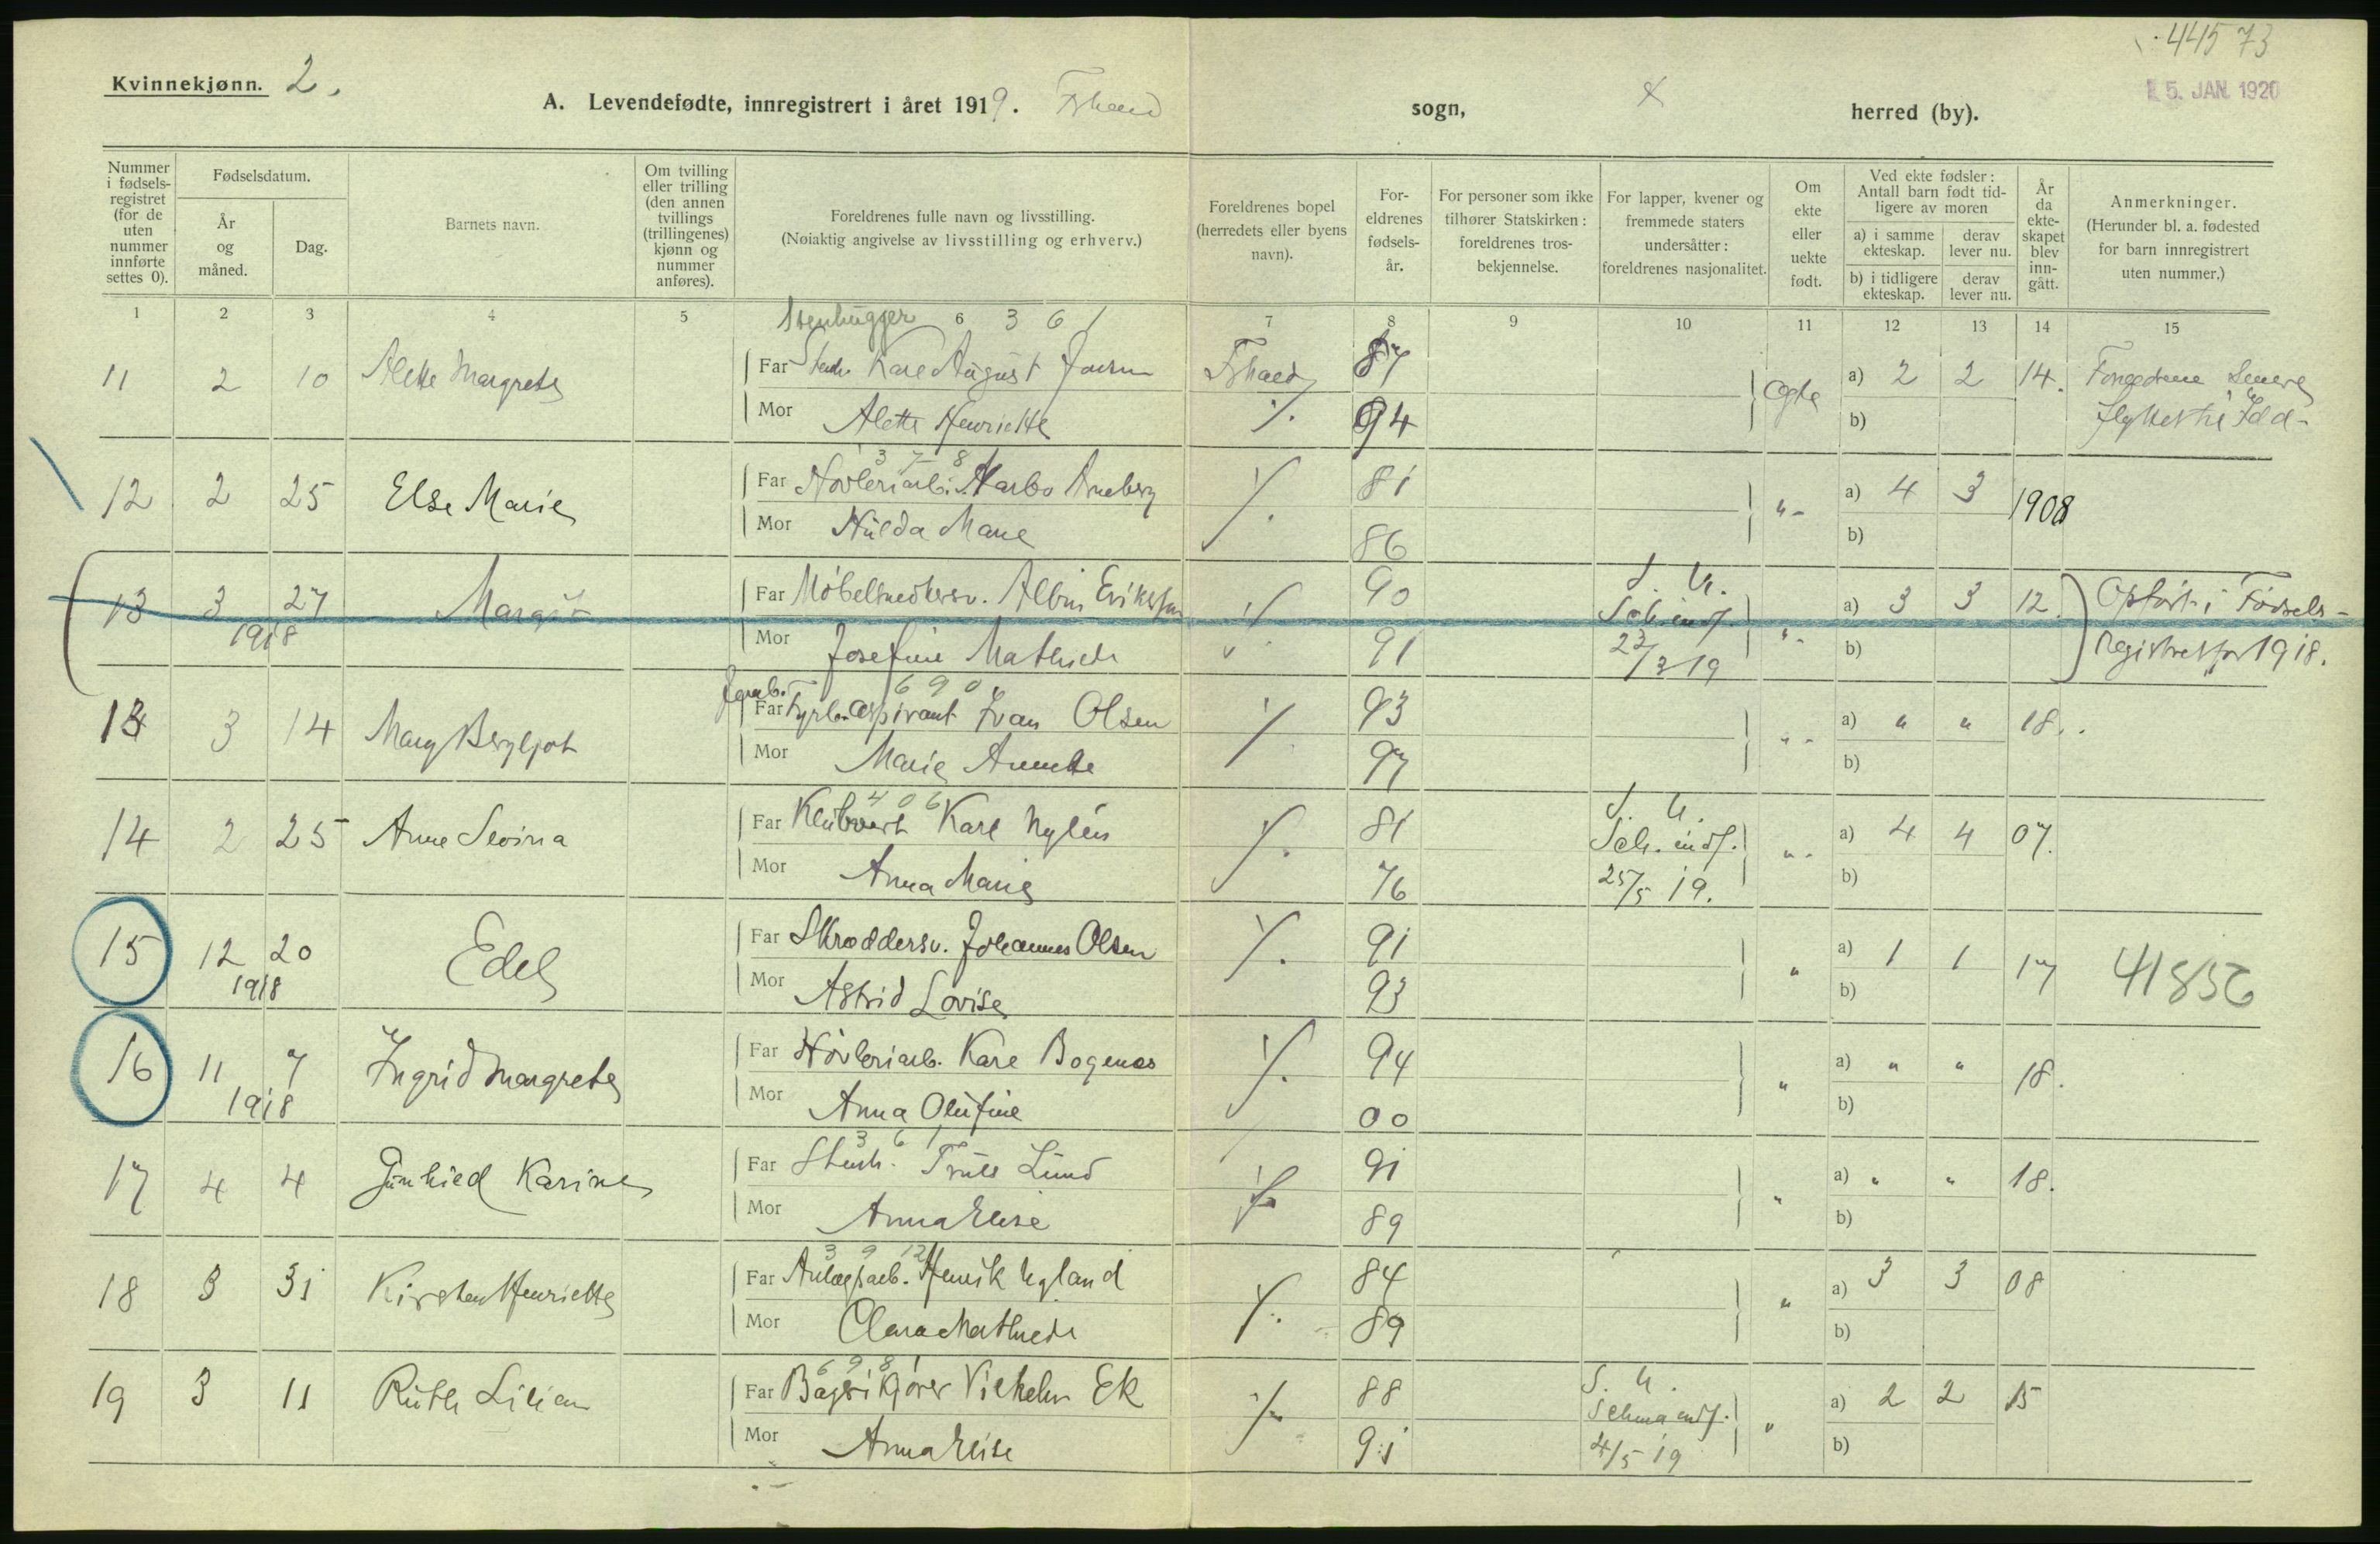 44573
Kvinnekjønn. 2.
15. JAN. 1920
A. Levendefødte, innregistrert i året 1919. Fshald sogn, herred (by).
Nummer i fødselsregistret (for de uten nummer innførte settes 0).
Fødselsdatum.
År og måned.
Dag.
Barnets navn.
Om tvilling eller trilling (den annen tvillings (trillingenes) kjønn og nummer anføres).
Foreldrenes fulle navn og livsstilling.
(Nøiaktig angivelse av livsstilling og erhverv.)
Foreldrenes bopel (herredets eller byens navn).
Foreldrenes fødselsår.
For personer som ikke tilhører Statskirken: foreldrenes trosbekjennelse.
For lapper, kvener og fremmede staters undersåtter: foreldrenes nasjonalitet.
Om ekte eller uekte født.
Ved ekte fødsler: Antall barn født tidligere av moren
a) i samme ekteskap. derav lever nu.
b) i tidligere ekteskap. derav lever nu.
År da ekteskapet blev inngått.
Anmerkninger.
(Herunder bl. a. fødested for barn innregistrert uten nummer.)
1 2 3 4 5 6 7 8 9 10 11 12 13 14 15
Stenhugger 3 6 1
11 2 10 Alette Margrete Far Stenh. Karl August Fshald 87 Ogte a) 2 2 14. Foreldrene senere
Mor Alette Henriette ./. 94 b) flyttet til Idd-
3 7 8
12 2 25 Else Marie Far Høvleriarb. Marbo Arneberg ./. 81 "- a) 4 3 1908
Mor Hulda Marie 86 b)
13 3 27 Margit Far Møbelsnedkersv. Albin Eriksson ./. 90 S. U. a) 3 3 12. Opført i Fødsels-
1918 Mor Josefine Mathilde 91 Sch. indf. 22/3 19 "- b) registret for 1918.
6 9 0
13 3 14 Mary Bergljot Far Jernb. Fyrb. aspirant Ivan Olsen ./. 93 "- a) " " 18.
Mor Marie Annette 97 b)
4 0 6
14 2 25 Anne Sevina Far Klubvert Karl Nylén ./. 81 S. U. "- a) 4 4 07.
Mor Anna Marie 76 Sch. indf. 25/5 19. b)
15 12 20 Edel Far Skræddersv. Johannes Olsen ./. 91 " a) 1 1 17 41856
1918 Mor Astrid Lovise 93 b)
16 11 7 Ingrid Margrete Far Høvleriarb. Karl Bogenes ./. 94 " a) " " 18.
1918 Mor Anna Olufine 00 b)
3 6 1
17 4 4 Gunhild Karine Far Stenh. Truls Lund ./. 91 " a) " " 18.
Mor Anna Elise 89 b)
3 9 12
18 3 31 Kirsten Henriette Far Anlægsarb. Henrik Nyland ./. 84 " a) 3 3 08
Mor Clara Mathilde 89 b)
6 9 8
19 3 11 Ruth Lilian Far Vilhelm Ek ./. 88 S. U. " a) 2 2 15
Mor Anna Elise 91 Schema indf. 4/5 19 b)